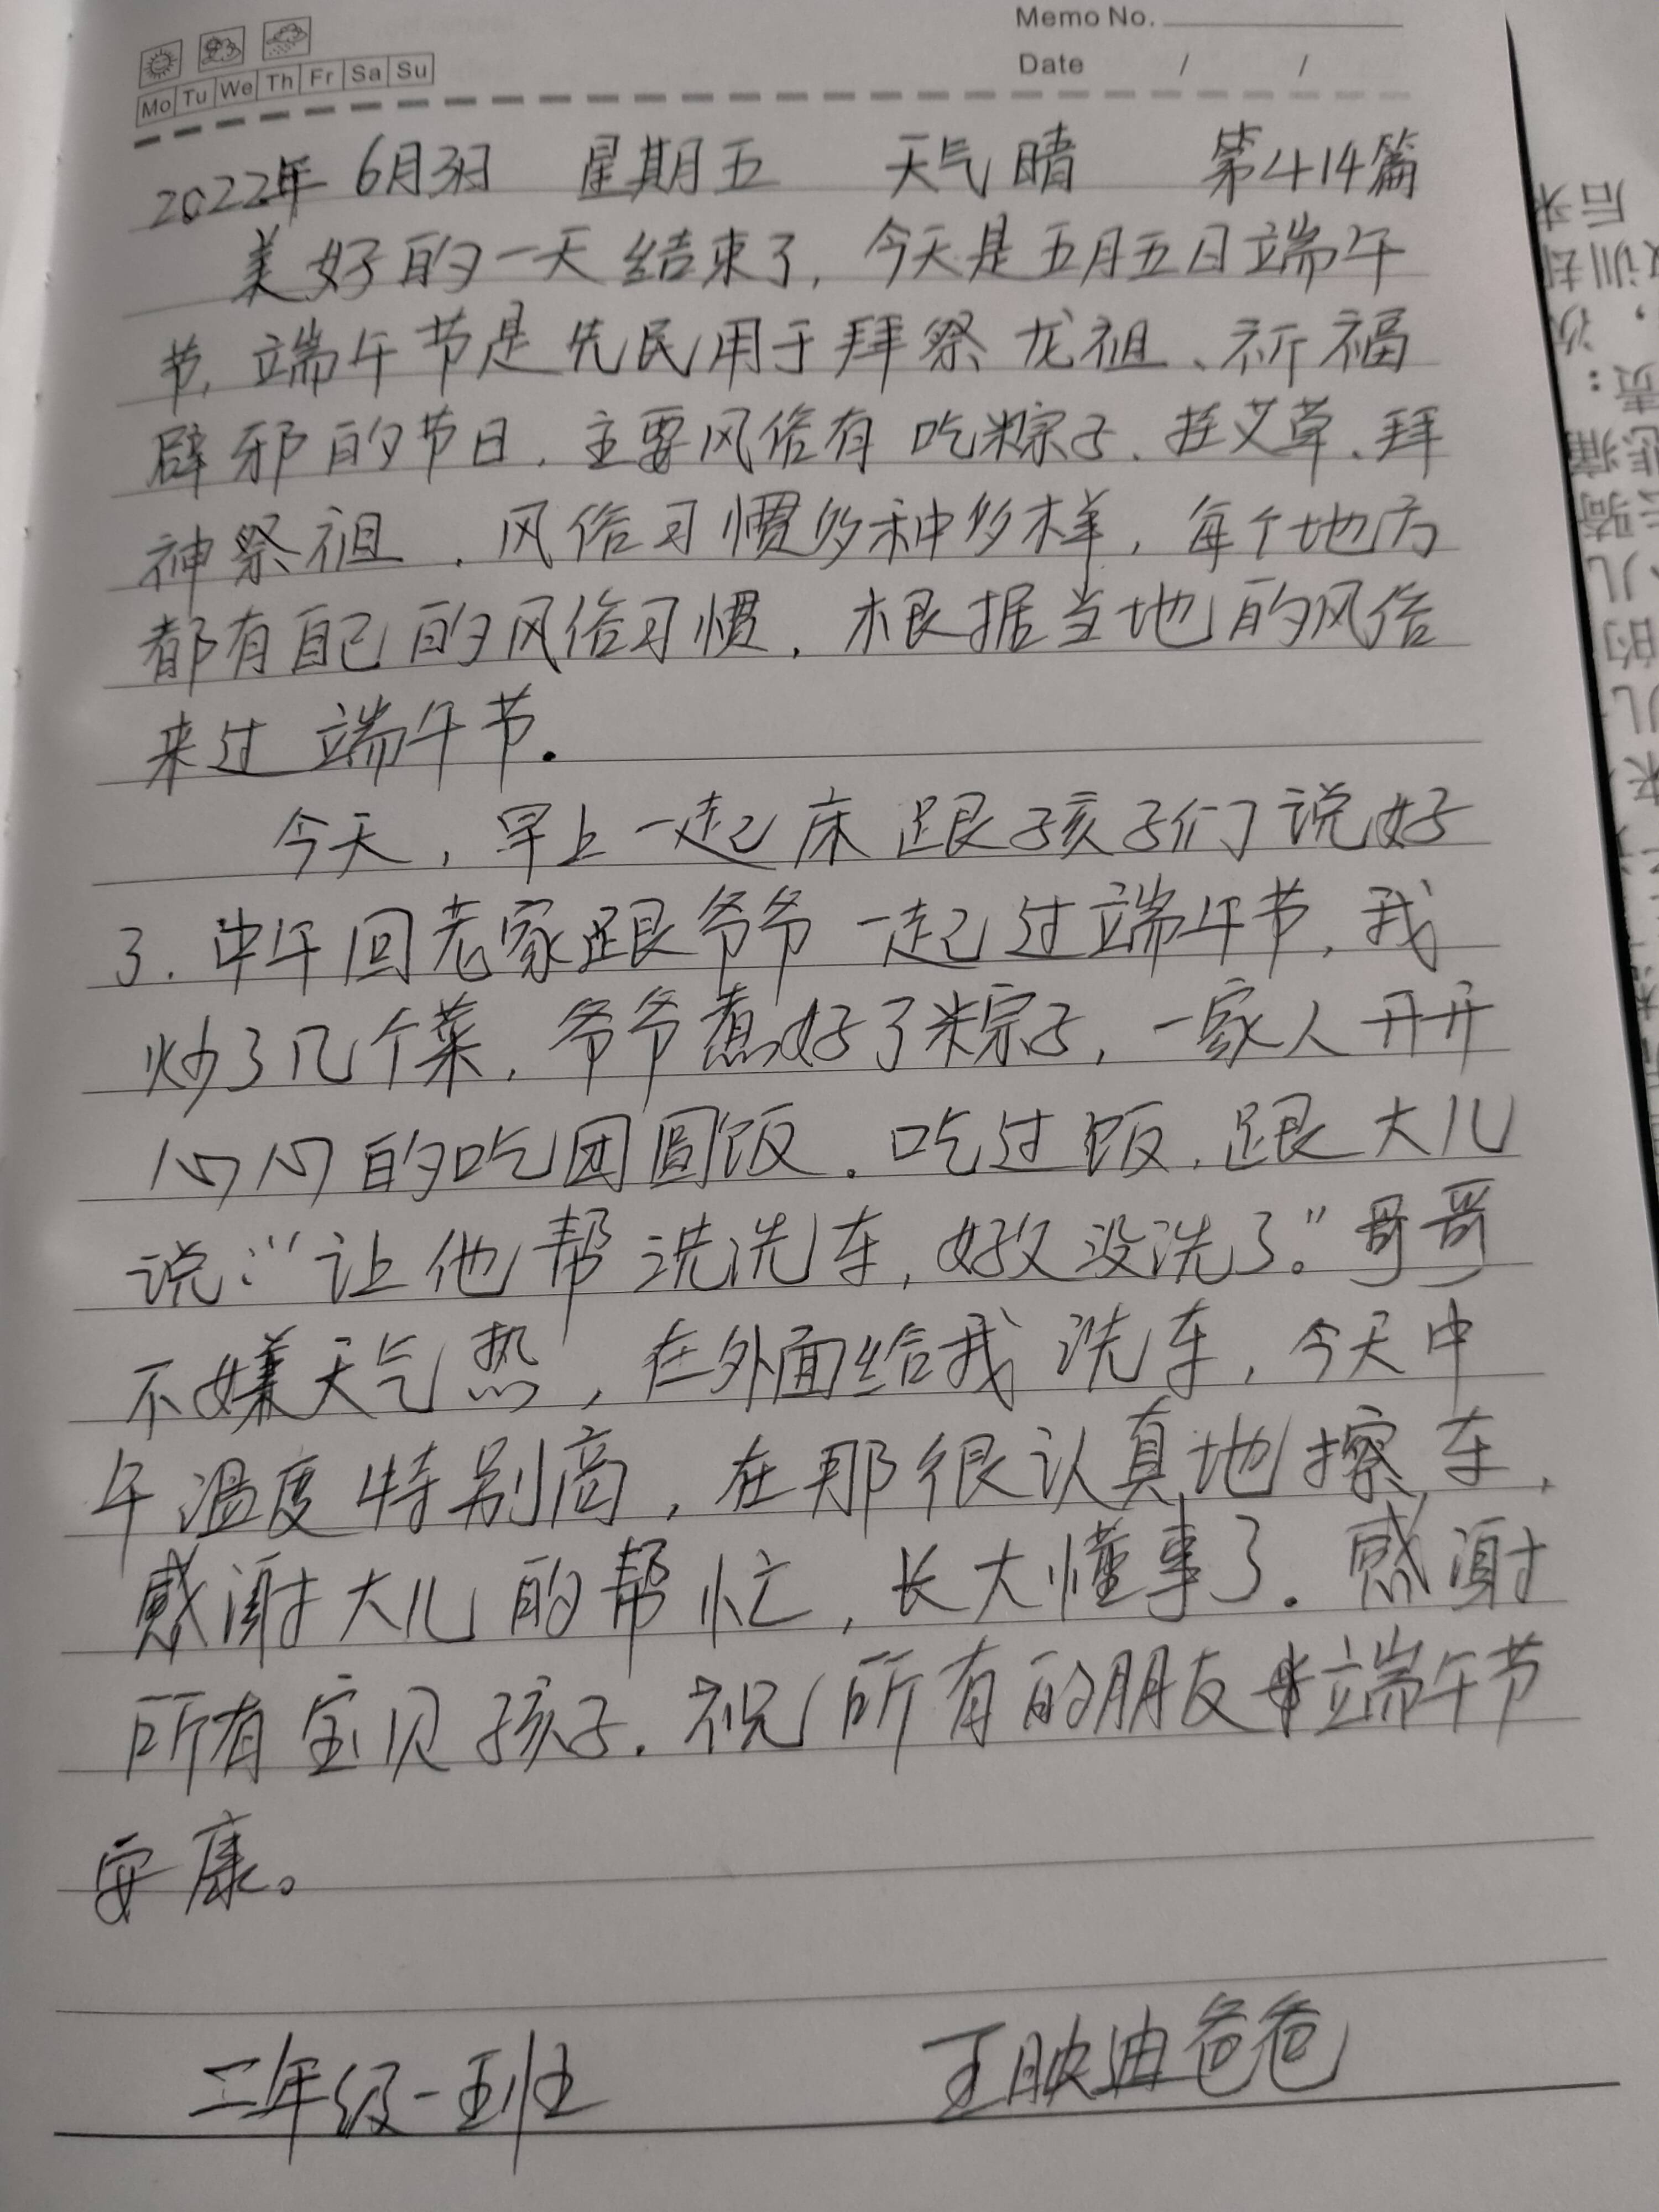 Memo No.
Date / /
Mo Tu We Th Fr Sa Su
2022年 6月3日 星期五 天气晴 第414篇
美好的一天结束了，今天是五月五日端午
节，端午节是先民用于拜祭龙祖、祈福
辟邪的节日．主要风俗有吃粽子、挂艾草、拜
神祭祖．风俗习惯多种多样，每个地方
都有自己的风俗习惯，根据当地的风俗
来过端午节．
今天，早上一起床跟孩子们说好
了．中午回老家跟爷爷一起过端午节，我
炒了几个菜，爷爷煮好了粽子，一家人开开
心心的吃团圆饭．吃过饭，跟大儿
说：“让他帮洗洗车，好久没洗了。”哥哥
不嫌天气热，在外面给我洗车，今天中
午温度特别高，在那很认真地擦车，
感谢大儿的帮忙，长大懂事了．感谢
所有宝贝孩子．祝所有的朋友端午节
安康。
二年级一班 王映迪爸爸